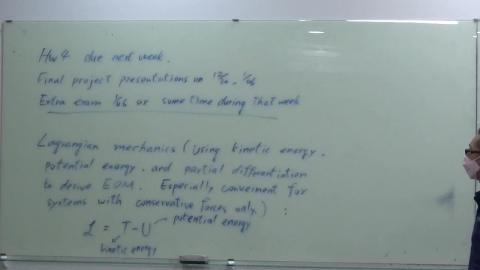 HW4 due next week.
Final project presentations on 12/30, 1/06
Extra exam 1/06 or some time during that week
Lagrangian mechanics (using kinetic energy,
potential energy, and partial differentiation
to derive EOM. Especially convenient for
systems with conservative forces only.) :
L = T - U potential energy
kinetic energy